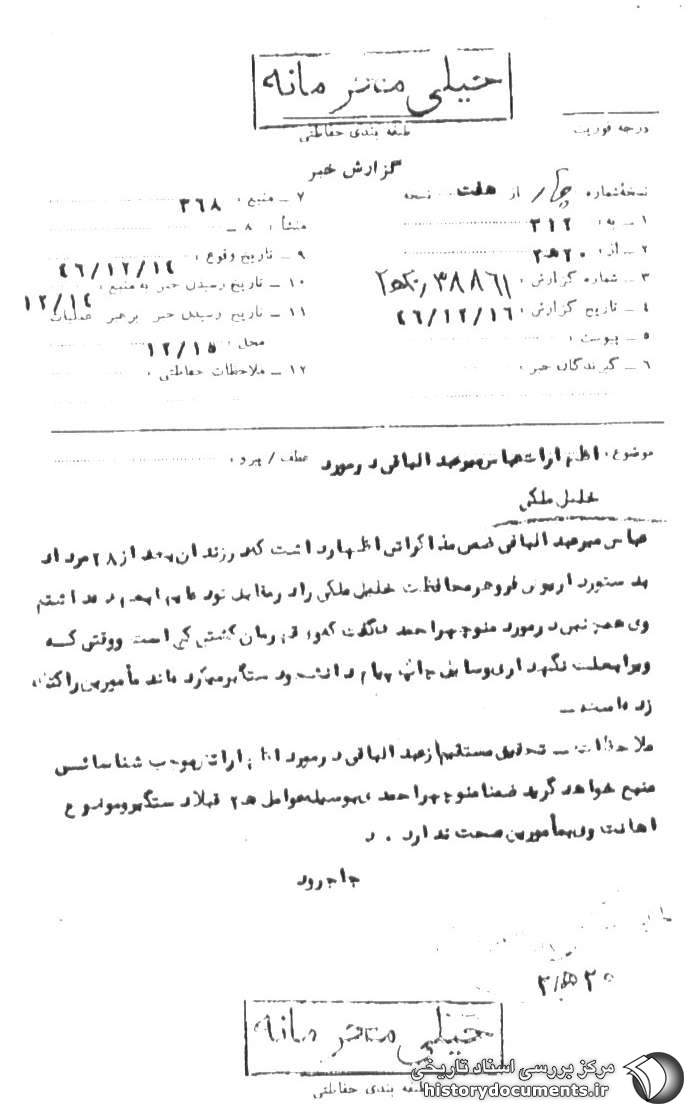 خیلی محرمانه
طبقه بندی حفاظتی
درجه فوریت
گزارش خبر
نسخه شماره چهار از هفت نسخه
۱ ــ به : ۳۱۲
۲ ــ از : ۲۰ ه ۳
۳ ــ شماره گزارش : ۳۸۸۶۱
۴ ــ تاریخ گزارش : ۴۶/۱۲/۱۶
۵ ــ پیوست :
۶ ــ گیرندگان خبر :
۷ ــ منبع : ۳۶۸
۸ ــ منشأ :
۹ ــ تاریخ وقوع : ۴۶/۱۲/۱۴
۱۰ ــ تاریخ رسیدن خبر به منبع : ۱۲/۱۴
۱۱ ــ تاریخ رسیدن خبر برهبر عملیات
محل : ۱۲/۱۵
۱۲ ــ ملاحظات حفاظتی :
موضوع : اظهارات عباس میرعبدالباقی در مورد
عطف / پیرو :
خلیل ملکی
عباس میرعبدالباقی ضمن مذاکراتی اظهار داشت که در زندان بعد از ۲۸ مرداد
بدستور داریوش فروهر محافظت خلیل ملکی را در مقابل توده ایها بعهده داشتم
وی همچنین در مورد منوچهر احمدی گفت که او قهرمان کشتی کج است و وقتی که
ویرا بعلت نگهداری وسایل چاپ پیام دانشجو دستگیر میکرده اند مأمورین را کتک
زده است ــ
ملاحظات ــ تحقیق مستقیم از عبدالباقی در مورد اظهارات موجب شناسائی
منبع خواهد گردید ضمنا منوچهر احمدی بوسیله عوامل ه ۳ قبلا دستگیر و موضوع
اهانت وی بمأمورین صحت ندارد . د
جاجرود
۲۰ ه ۳
خیلی محرمانه
طبقه بندی حفاظتی
مرکز بررسی اسناد تاریخی
historydocuments.ir